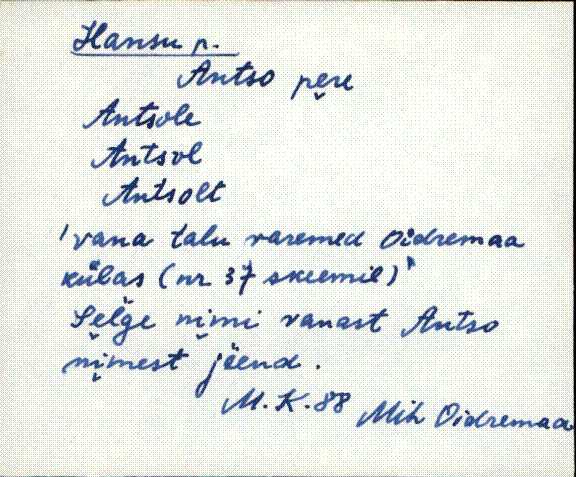 Hansu p.
Antso pe̮re
Antsole
Antsol
Antsolt
'vana talu varemed Oidremaa
külas (nr 37 skeemil)'
Se̮l̆ge ni̮mi vanast Antso
ni̮mest jäend.
M.K.88 Mih Oidremaa